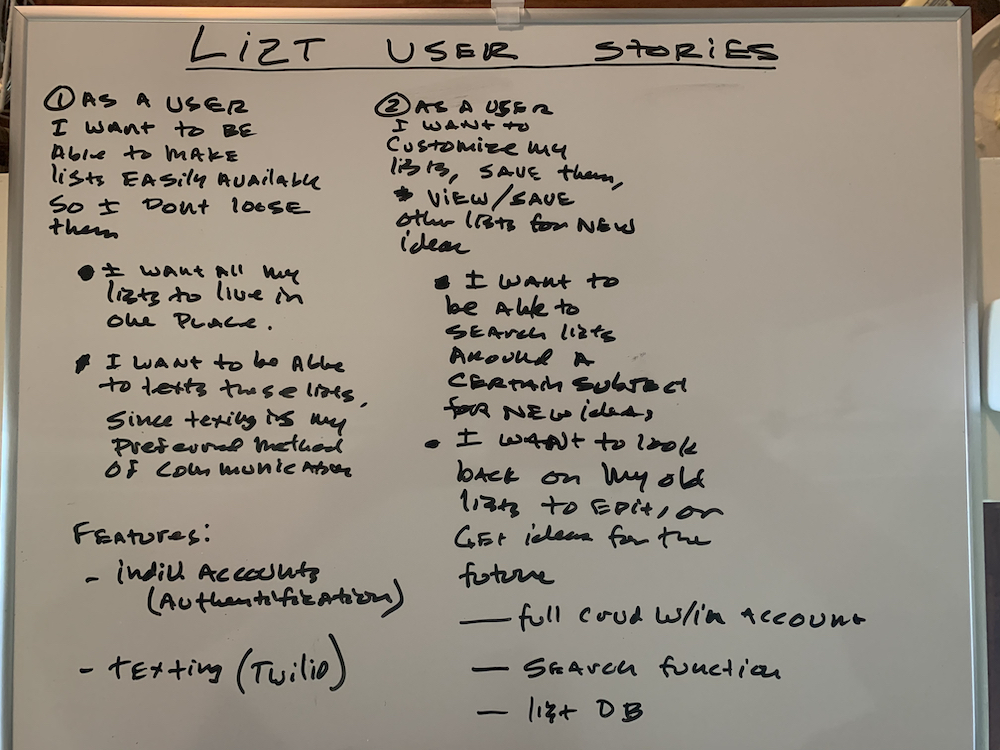 LIZT USER STORIES
① AS A USER
I WANT to BE
Able to MAKE
lists EASily AVAilABle
SO I DONt loose
them
• I WANT All my
lists to live in
one PlAce.
• I WANT to be Able
to texts these lists,
Since texing is my
Preferred method
Of communication
Features:
- indiv. Accounts
(Authentifization)
- tExting (Twilio)
② AS A USER
I WANT to
Customize my
lists, SAVE them,
* VIEW/SAVE
other lists for NEW
ideas
• I WANT to
be Able to
SEARCH lists
AROUND A
CERTAIN SUBJECT
for NEW ideas
• I WANT to look
bACK on My old
lists to EDit, or
GEt ideas for the
future
— full Crud w/in Account
— SEARCH function
— list DB